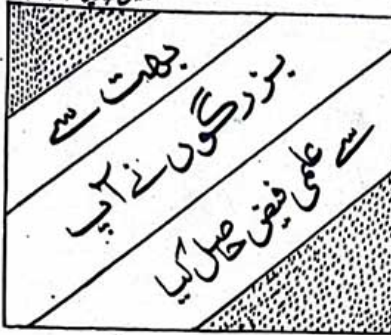 بہت سے
بزرگوں نے آپ
سے علمی فیض حاصل کیا